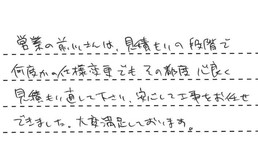 営業の前川さんは、見積もりの段階で
何度かの仕様変更でもその都度心良く
見積もり直して下さり、安心して工事をお任せ
できました。大変満足しております。